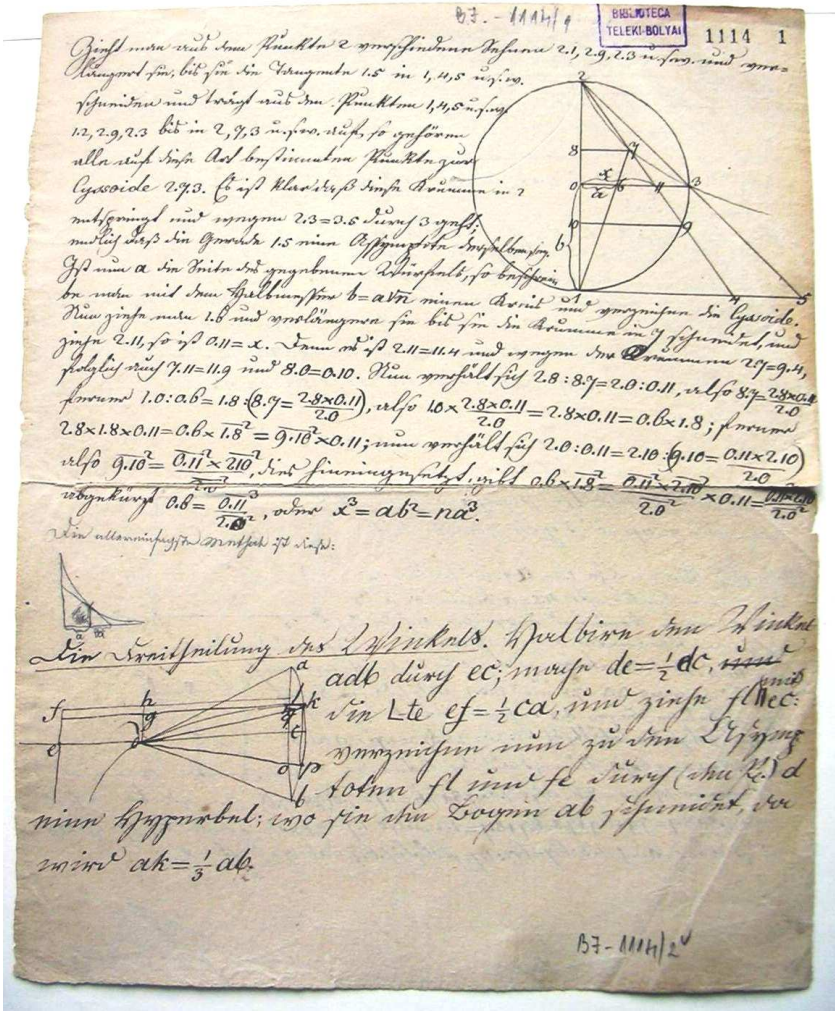 BJ.-1114/1
BIBLIOTECA
TELEKI-BOLYAI
1114 1
Zieht man aus dem Punkte 2 verschiedene Sehnen 2.1, 2.9, 2.3 u.s.w. und ver=
längert sie, bis sie die Tangente 1.5 in 1, 4, 5 u.s.w.
schneiden und trägt aus den Punkten 1, 4, 5 u.s.w.
1.2, 2.9, 2.3 bis in 2, 7, 3 u.s.w. auf, so gehören
alle auf diese Art bestimmten Punkte zur
Cyssoide 2.7.3. Es ist klar daß diese Krumme in 2
entspringt und wegen 2.3=3.5 durch 3 geht;
endlich daß die Gerade 1.5 eine Assymptote derselben sey.
Ist nun a die Seite des gegebenen Würfels, so beschrei=
be man mit dem Halbmesser b=a√n einen Kreis und verzeichne die Cyssoide.
Nun ziehe man 1.6 und verlängere sie bis sie die Krumme in 7 schneidet, und
ziehe 2.11, so ist 0.11=x. Denn es ist 2.11=11.4 und wegen der Krummen 2.7=9.4,
folglich auch 7.11=11.9 und 8.0=0.10. Nun verhält sich 2.8:8.7=2.0:0.11, also 8.7=2.8×0.11/2.0
ferner 1.0:0.6=1.8:(8.7=2.8×0.11/2.0), also 1.0×2.8×0.11/2.0=2.8×0.11=0.6×1.8; ferner
2.8×1.8×0.11=0.6×1.8²=9.10²×0.11; nun verhält sich 2.0:0.11=2.10:(9.10=0.11×2.10/2.0)
also 9.10²=0.11²×2.10²/2.0², dies hineingesetzt, gibt 0.6×1.8²=0.11²×2.10²/2.0²×0.11=
abgekürzt 0.6=0.11³/2.0², oder x³=ab²=na³.
Die allereinfachste Methode ist diese:
Die Dreitheilung des Winkels. Halbire den Winkel
adb durch ec; mache de=½dc, und
die Lte ef=½ca, und ziehe fl∥ec:
verzeichne nun zu den Asymp
toten fl und fe durch (den P.) d
eine Hyperbel; wo sie den Bogen ab schneidet, da
wird ak=⅓ab.
2
8
7
x
0
a
6
11
3
10
9
b
1
4
5
a
f
h
l
k
g
e
d
c
o
p
b
BJ-1114/2v